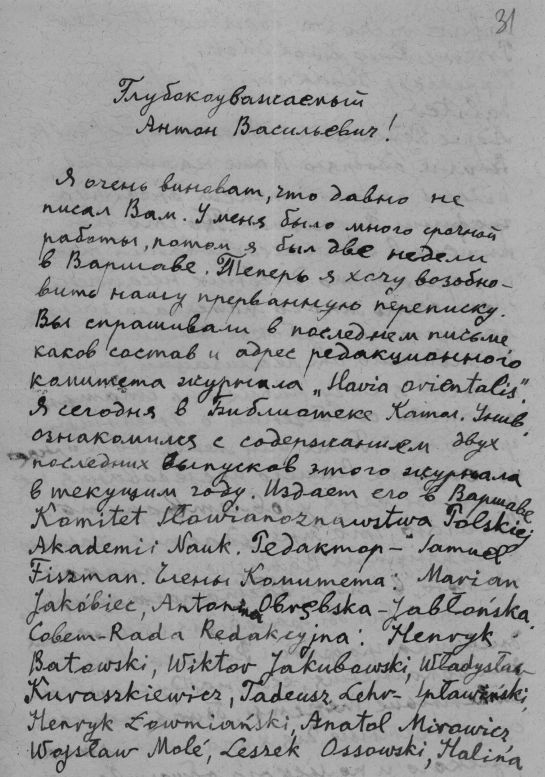 31
Глубокоуважаемый
Антон Васильевич!
Я очень виноват, что давно не
писал Вам. У меня было много срочной
работы, потом я был две недели
в Варшаве. Теперь я хочу возобно-
вить нашу прерванную переписку.
Вы спрашивали в последнем письме
каков состав и адрес редакционного
комитета журнала „Slavia orientalis".
Я сегодня в Библиотеке Катол. Унив.
ознакомился с содержанием двух
последних выпусков этого журнала
в текущим году. Издает его в Варшаве
Komitet Słowianoznawstwa Polskiej
Akademii Nauk. Редактор – Samuel
Fiszman. Члены Комитета: Marian
Jakóbiec, Antonina Obrębska-Jabłońska.
Совет-Rada Redakcyjna: Henryk
Batowski, Wiktor Jakubowski, Władysław
Kuraszkiewicz, Tadeusz Lehr-Spławiński,
Henryk Łowmiański, Anatol Mirowicz,
Wojsław Molé, Leszek Ossowski, Halina